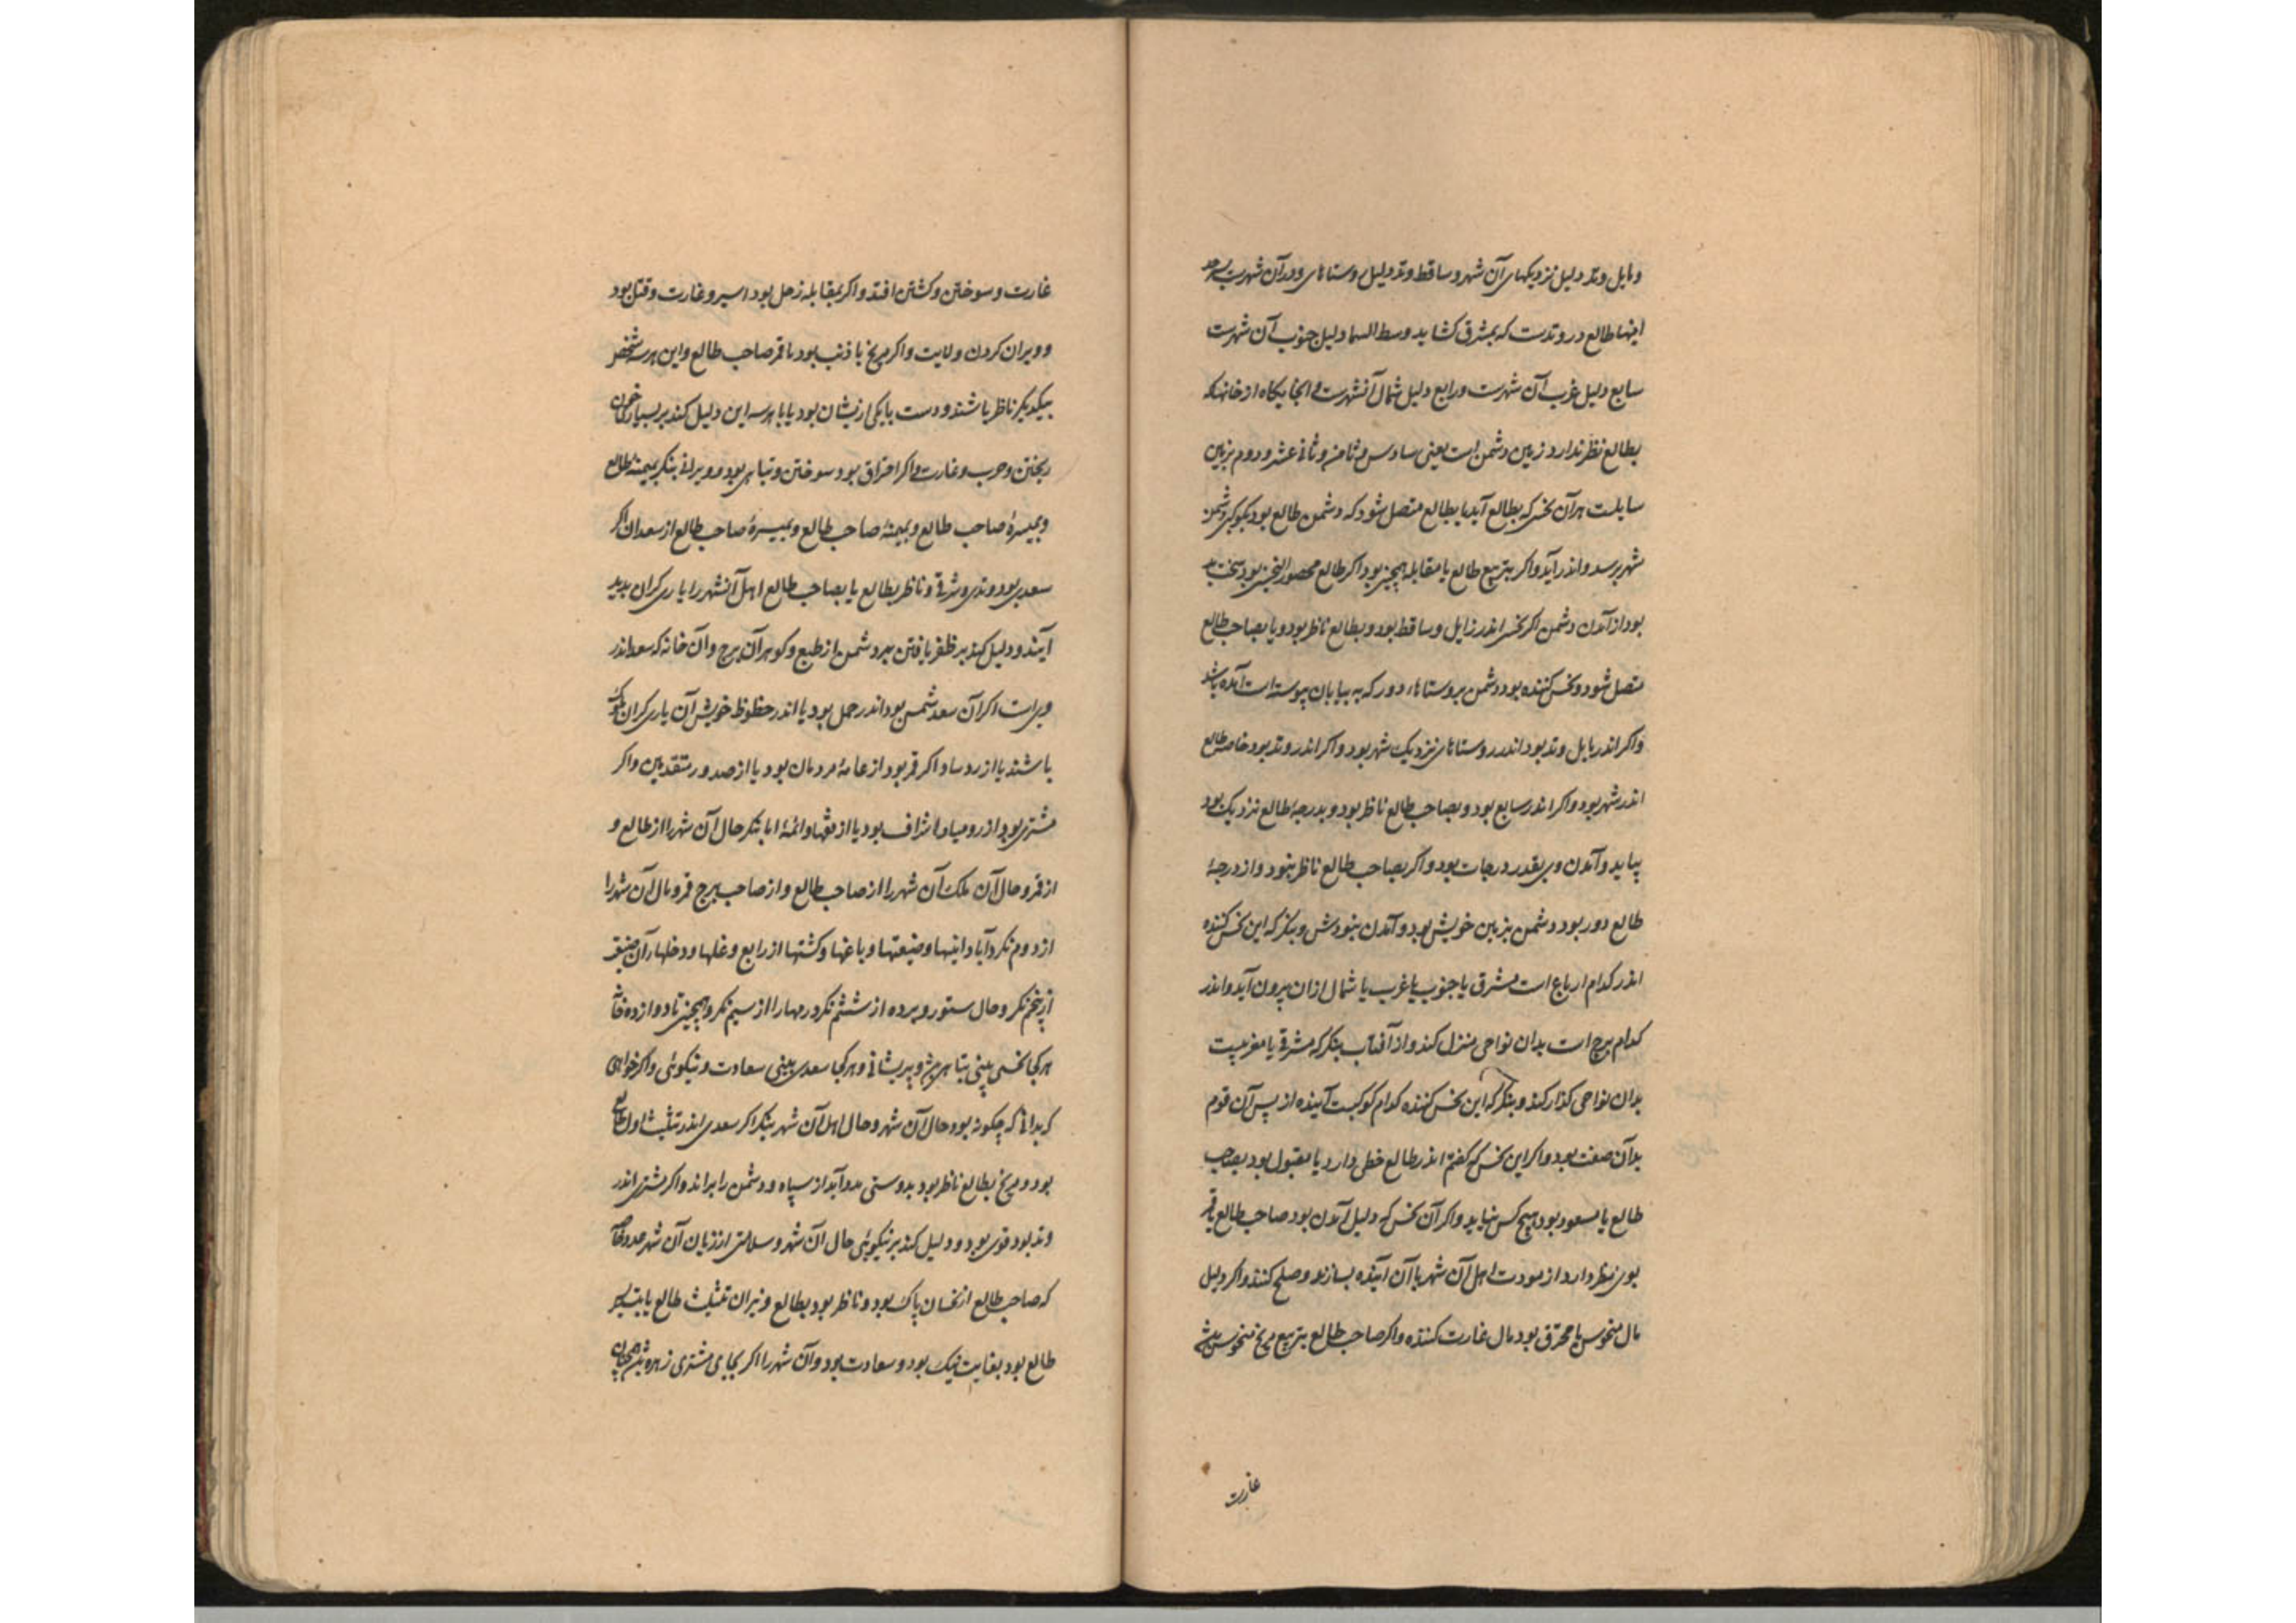 ومایل وتد دلیل نزدیکهای آن شهر و ساقط وتد دلیل روستاهای دور آن شهرست
اینها طالع در وتدست که بمشرق کشاید وسط السما دلیل جنوب آن شهرست
سابع دلیل غرب آن شهرست ورابع دلیل شمال آنشهرست و انجایکاه از خانها که
بطالع نظر ندارد زمین دشمن است یعنی سادس و ثامن و ثانی عشر و دوم بزمین
هر آن نحس که بطالع آید یا بطالع متصل شود که دشمن طالع بود
شهر برسد و اندر آید واکر بتربیع طالع یا مقابله همچنین بود اکر طالع محصور النحسین بود سخت بد
بود از آمدن دشمن اکر نحس اندر زایل وساقط بود و بطالع ناظر بود و یا بصاحب طالع
متصل شود و نحس کننده بود دشمن بروستاهاء دور که به بیابان پیوسته است آمده باشد
واکر اندر مایل وتد بود اندر روستاهای نزدیک شهر بود واکر اندر وتد بود خاصه طالع
اندر شهر بود واکر اندر سابع بود و بصاحب طالع ناظر بود و بدرجهٔ طالع نزدیک بود
بیاید و آمدن وی بقدر درجات بود واکر بصاحب طالع ناظر نبود و از درجهٔ
طالع دور بود دشمن بزمین خویش بود و آمدن نبودش و بنکر که این نحس کننده
اندر کدام ارباع است مشرق یا جنوب یا غرب یا شمال ازان بیرون آید واندر
کدام برج است بدان نواحی منزل کند و از آفتاب بنکر که مشرقی یا مغربیست
بدان نواحی کذار کند و بنکر که این نحس کننده کدام کوکبست آینده از پس آن قوم
بدآن صفت بود واکر این نحس که کفتم اندر طالع خطی دارد یا مقبول بود بصاحب
طالع یا مسعود بود هیچ کس نیاید واکر آن نحس که دلیل آمدن بود صاحب طالع یا قمر
بوی نظر دارد از مودت اهل آن شهر با آن آینده بسازند و صلح کنند واکر دلیل
مال منحوس یا محترق بود مال غارت کننده واکر صاحب طالع بتربیع مریخ منحوس باشد
غارت
غارت و سوختن و کشتن افتد و اکر بمقابله زحل بود اسیر و غارت و قتل بود
و ویران کردن ولایت واکر مریخ با ذنب بود با قمر صاحب طالع و این هر سه شخص
بیکدیکر ناظر باشند و دست با یکی ازیشان بود یا با هر سه این دلیل کند بر بسیاری خون
ریختن و حرب و غارت واکر احتراق بود سوختن و تباهی بود و ویرانی بنکر بمیمنهٔ طالع
وبمیسرهٔ صاحب طالع و بمیمنهٔ صاحب طالع و بمیسرهٔ صاحب طالع از سعدان اکر
سعدی بود وتدی و شرقی و ناظر بطالع یا بصاحب طالع اهل آنشهر را یاری کران پدید
آیند و دلیل کند بر ظفر یافتن بر دشمن از طبع و کوهر آن برج و آن خانه که سعد اندر
ویرات اکر آن سعد شمس بود اندر حمل بود یا اندر حظوظ خویش آن یاری کران ملوک
باشند یا از روسا و اکر قمر بود از عامهٔ مردمان بود یا از صدور متقدمین واکر
مشتری بود از رومیا و اشراف بود یا از فقها و ائمهٔ اما بنکر حال آن شهر را از طالع و
از قمر و حال آن ملک آن شهر را از صاحب طالع و از صاحب برج قمر و مال آن شهر را
از دوم نکر و آبادانیها و ضیعتها و باغها و کشتها از رابع و غلها و دخلهاء آن
از پنجم نکر و حال ستور و برده از ششم نکر و مهارا از سیم نکر و همچنین تا دوازده خانه
هر کجا نحسی بینی تباهی و پریشانی و هر کجا سعدی بینی سعادت و نیکوئی واکر خواهی
که بدانی که چکونه بود حال آن شهر و حال اهل آن شهر بنکر اکر سعدی اندر تثلیث اول طالع
بود و مریخ بطالع ناظر بود بدوستی مدد آید از سپاه و دشمن را براند واکر مشتری اندر
وتد بود قوی بود و دلیل کند بر نیکوئی حال آن شهر و سلامتی از زیان آن شهر
که صاحب طالع از نحسان پاک بود و ناظر بود بطالع و نیران تثلیث طالع یا بتسدیس
طالع بود بغایت نیک بود و سعادت بود و آن شهر را اکر بجای مشتری زهره بود همچنان